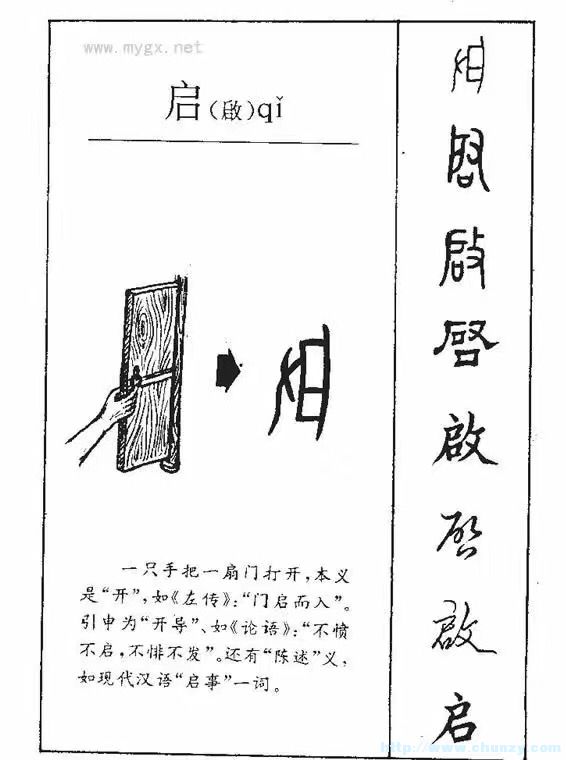 www.mygx.net
启(啟)qǐ
一只手把一扇门打开,本义
是“开”,如《左传》:“门启而入”。
引申为“开导”、如《论语》:“不愤
不启,不悱不发”。还有“陈述”义,
如现代汉语“启事”一词。
啟
啓
啟
启
啟
启
http://www.chunzy.com